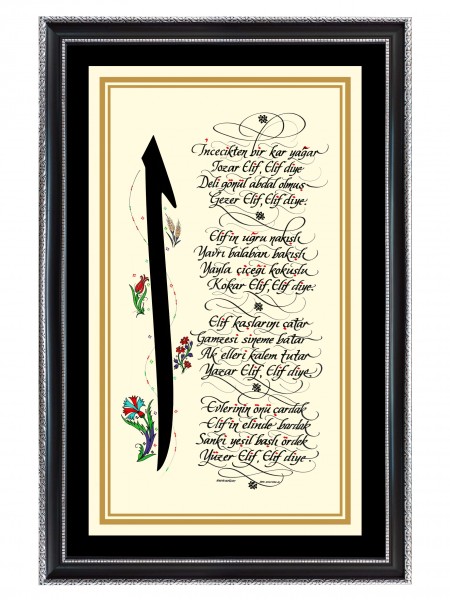 ا
İncecikten bir kar yağar
Tozar Elif, Elif diye
Deli gönül abdal olmuş
Gezer Elif, Elif diye.
Elif'in uğru nakışlı
Yavrı balaban bakışlı
Yayla çiçeği kokuşlu
Kokar Elif, Elif diye.
Elif kaşlarını çatar
Gamzesi sineme batar
Ak elleri kalem tutar
Yazar Elif, Elif diye
Evlerinin önü çardak
Elif'in elinde bardak
Sanki yeşil başlı ördek
Yüzer Elif, Elif diye